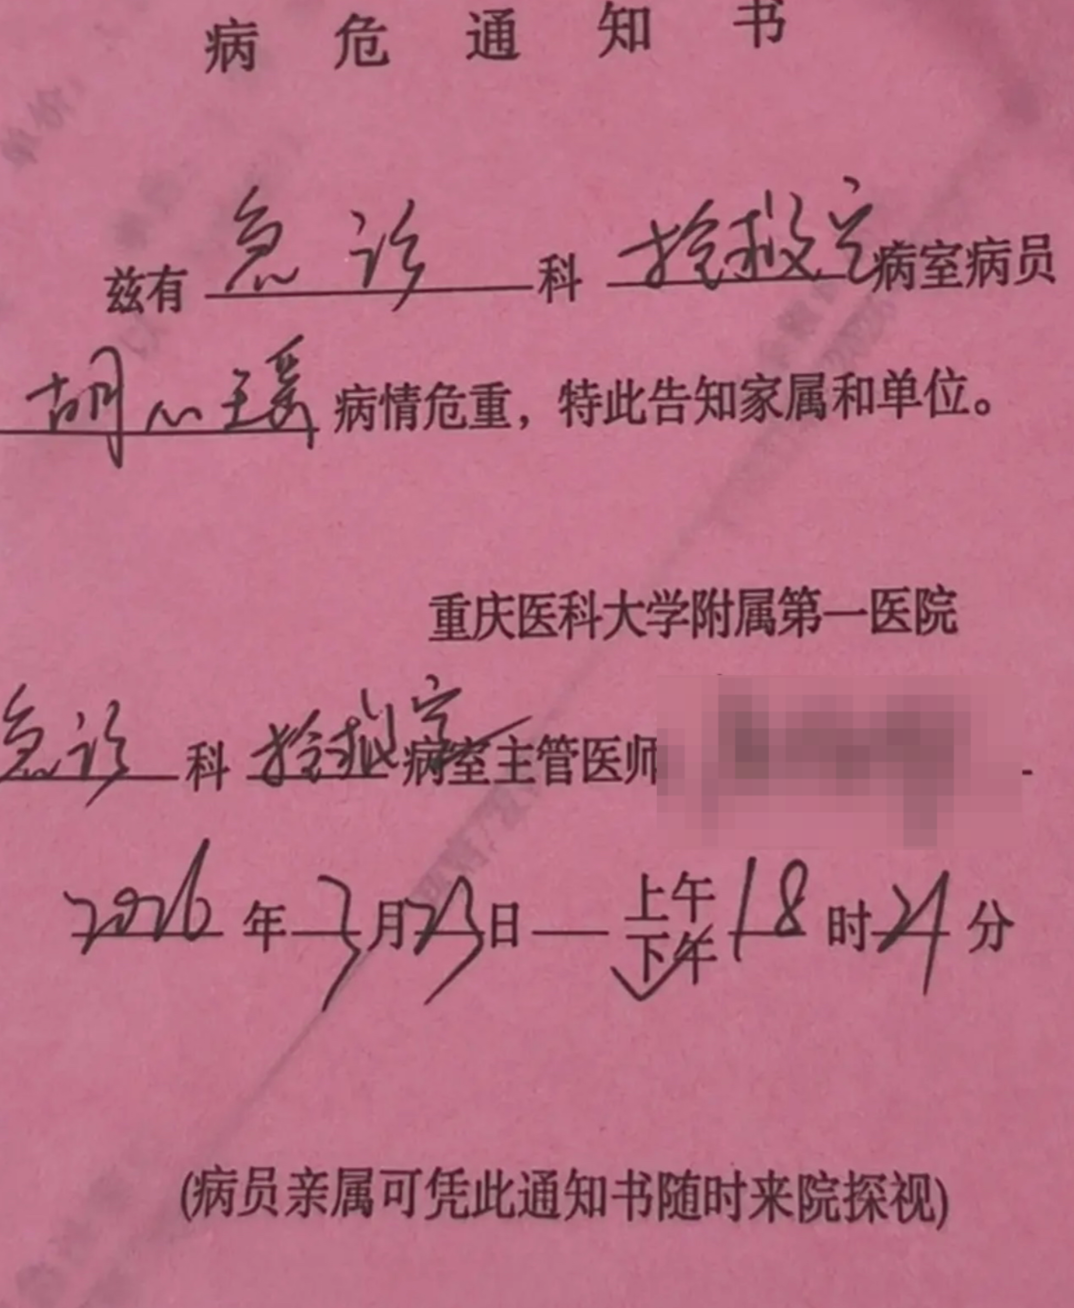 病危通知书
兹有 急诊 科 抢救室 病室病员
胡心瑶 病情危重，特此告知家属和单位。
重庆医科大学附属第一医院
急诊 科 抢救室 病室主管医师
2026 年 3 月 23 日 — 上午 下午 18 时 21 分
(病员亲属可凭此通知书随时来院探视)